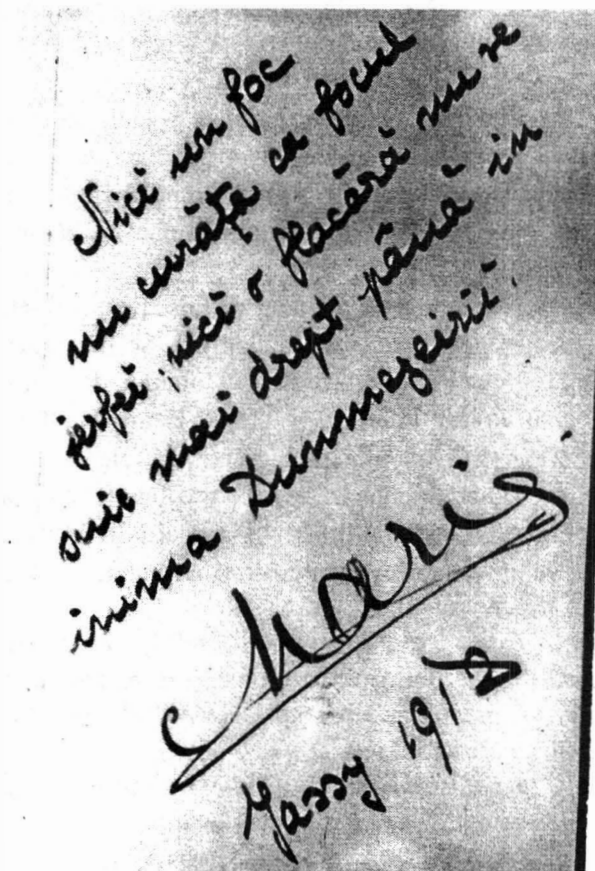 Nici un foc
nu curăța ca focul
jerfei, nici o flacără nu se
suie mai drept până in
inima Dunmezeirii.
Maria
Jassy 1918